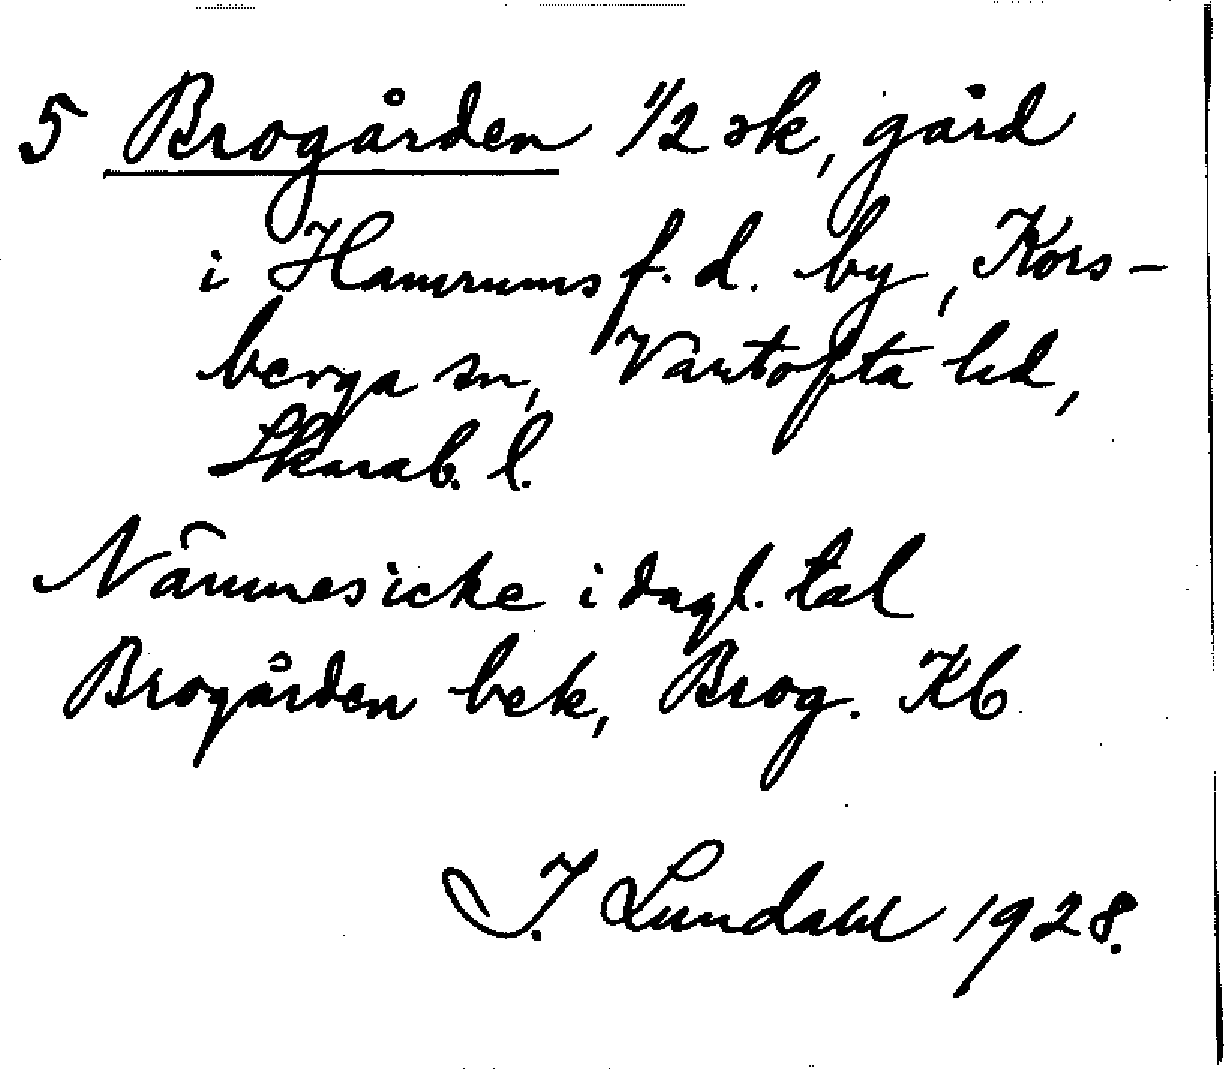 5 Brogården 1/2 sk, gård
i Hamrums f. d. by, Kors-
berga sn, Vartofta hd,
Skarab. l.
Nämnes icke i dagl. tal
Brogården bek, Brog. Kb
I. Lundahl 1928.